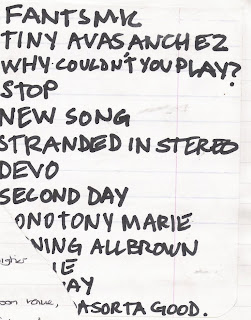 FANTSMK
TINY AVASANCHEZ
WHY COULDN'T YOU PLAY?
STOP
NEW SONG
STRANDED IN STEREO
DEVO
SECOND DAY
ONOTONY MARIE
NING ALLBROWN
IE
AY
ASORTA GOOD.